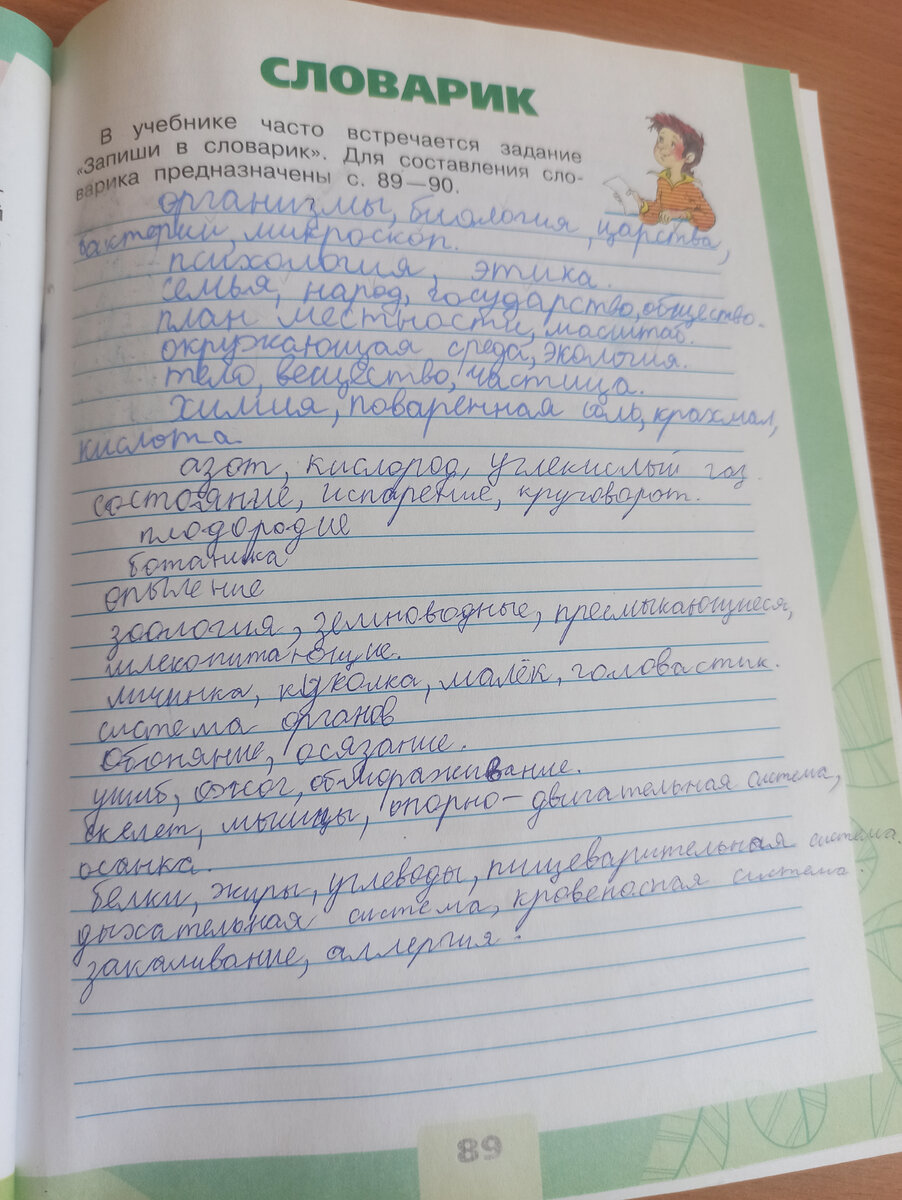 СЛОВАРИК
В учебнике часто встречается задание
«Запиши в словарик». Для составления сло-
варика предназначены с. 89—90.
организмы, биология, царства,
бактерии, микроскоп.
психология, этика.
семья, народ, государство, общество.
план местности, масштаб.
окружающая среда, экология.
тело, вещество, частица.
химия, поваренная соль, крахмал,
кислота
азот, кислород, углекислый газ.
состояние, испарение, круговорот.
плодородие
ботаника
опыление
зоология, земноводные, пресмыкающиеся,
млекопитающие.
личинка, куколка, малёк, головастик.
система органов
обоняние, осязание.
ушиб, ожог, обмораживание.
скелет, мышцы, опорно-двигательная система,
осанка.
белки, жиры, углеводы, пищеварительная система.
дыхательная система, кровеносная система.
закаливание, аллергия.
89